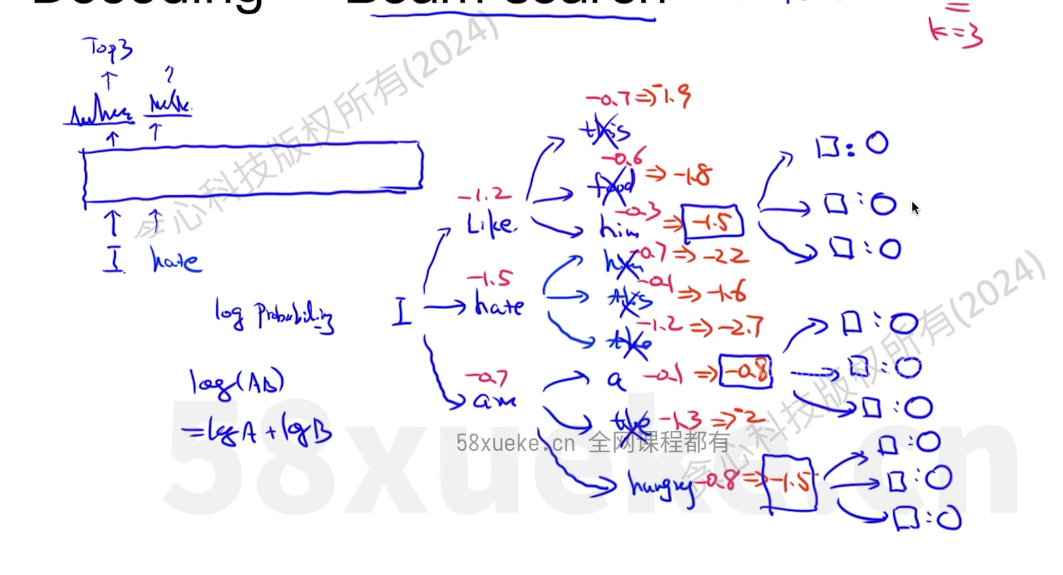 k=3
Top3
?
-0.7 ⇒ -1.9
this
-0.6 ⇒ -1.8
food
-1.2
Like
-0.3 ⇒ -1.5
him
-0.7 ⇒ -2.2
I hate
-1.5
hate
-0.1 ⇒ -1.6
this
log Probability
I
-1.2 ⇒ -2.7
the
log(AB)
=logA+logB
-0.7
am
a -0.1 ⇒ -0.8
the -1.3 ⇒ -2
hungry -0.8 ⇒ -1.5
58xueke.cn 全网课程都有
58xueke.cn
心科技版权所有(2024)
心科技版权所有(2024)